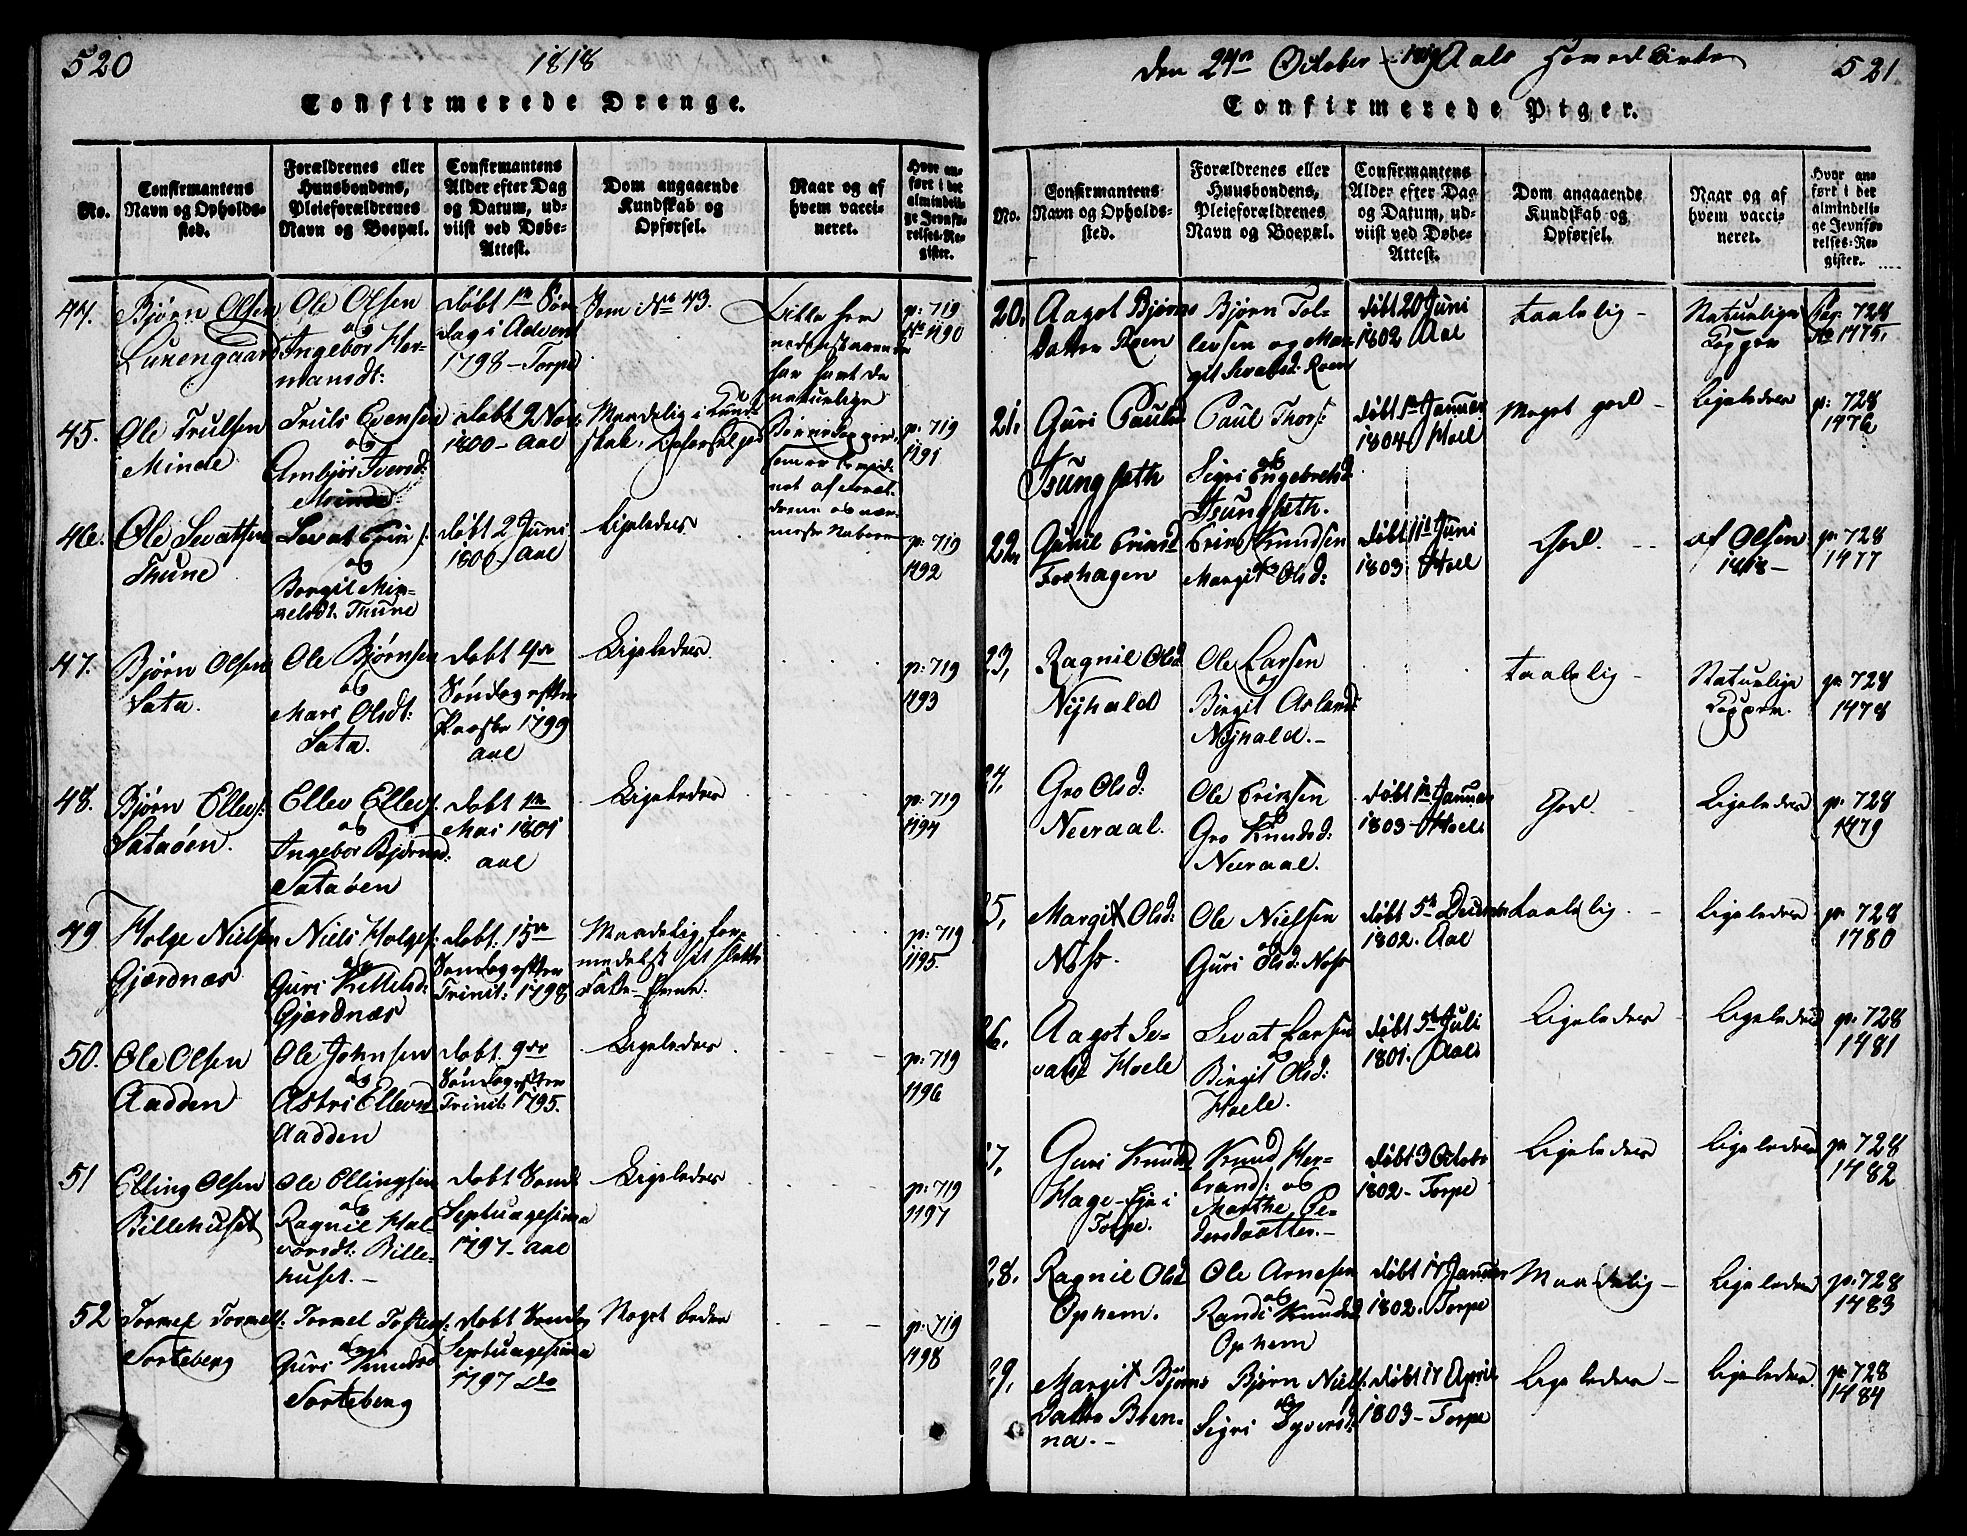 520
1818
Confirmerede Drenge.
No.
Confirmantens
Navn og Opholds-
sted.
Forældrenes eller
Huusbondens,
Pleieforældrenes
Navn og Boepæl.
Confirmantens
Alder efter Dag
og Datum, ud-
viist ved Døbe-
Attest.
Dom angaaende
Kundskab og
Opførsel.
Naar og af
hvem vacci-
neret.
Hvor an-
ført i det
almindeli-
ge Jevnfø-
relses-Re-
gister.
44.
Bjørn Olsen
Ole Olsen
og
Ingebor Her-
mansdt:
døbt 1ste Søn
dag i Advent
1798 – Torpe
Som No 43.
p: 719
No 1190
45.
Ole Trulsen
Minde
Truls Evensen
og
Ambjør Iversd:
Minde
døbt 2 Nov:
1800 – Aal
p: 719
1191
46.
Ole Sevatsen
Thune
Sevat Eriks:
og
Bergit Mik-
kelsdt: Thune
døbt 2 Juni
1800 – Aal
Ligeledes
p: 719
1192
47.
Bjørn Olsen
Sata.
Ole Bjørnsen
og
Mari Olsdt:
Sata.
døbt 4de
Søndag efter
Paaske 1799
Aal
Ligeledes.
p: 719
1193
48.
Bjørn Ellevs:
Sataøen.
Ellev Ellevs:
og
Ingebor Bjørnsd:
Sataøen
døbt 1ste
Mai 1801
Aal
Ligeledes
p: 719
1194
49
Holge Nielsen
Gjærdnæs
Niels Holges:
og
Guri Kittelsd:
Gjærdnæs
døbt: 15de
Søndag efter
Trinit: 1798
p: 719
1195.
50.
Ole Olsen
Aadden
Ole Johnsen
og
Astri Ellevsd
Aadden
døbt. 9de
Søndag efter
Trinit: 1795.
Ligeledes
p: 719
1196
51
Elling Olsen
Billehuset
Ole Ellingsen
og
Ragnil Hal-
vorsdt: Bille-
huset. –
døbt Sønd:
Septuagesima
1797 – Aal
Ligeledes
p: 719
1197
52
Tormel Tormels:
Sorteberg
Tormel Tostens:
og
Guri Knudsd
Sorteberg
døbt Søndag
Septuagesima
1797 Do
Noget bedre
p: 719
1198
Lille her
nedenstaaende
har havt de
naturlige
den 24de October 1819 Aals Hovedkirke
521
Confirmerede Piger.
No.
Confirmantens
Navn og Opholds-
sted.
Forældrenes eller
Huusbondens,
Pleieforældrenes
Navn og Boepæl.
Confirmantens
Alder efter Dag
og Datum, ud-
viist ved Døbe-
Attest.
Dom angaaende
Kundskab og
Opførsel.
Naar og af
hvem vacci-
neret.
Hvor an-
ført i det
almindeli-
ge Jevnfø-
relses-Re-
gister.
20.
Aagot Bjørns
Datter Roen
Bjørn Tol-
levsen og Mar-
git Sevatsd: Roen
døbt 20 Juni
1802 Aal
taalelig –
Naturlige
Kopper
Pag. 728
No 1475.
21.
Guri Paulsd
Tsungsæth
Paul Thors:
og
Sigri Engebretsd
Tsungsæth.
døbt 1ste Januar
1804. Hoel
Meget god –
Ligeledes
p: 728
1476
22.
Gunil Eriksd
Foshagen
Erik Knudsen
og
Margit Olsd:
døbt 11te Juni
1803. Hoel
God.
af Olsen
1818 –
p: 728
1477
23.
Ragnil Olsd
Nijhald
Ole Larsen
og
Birgit Aslaks:
Nijhald. –
taalelig –
Naturlige
Kopper.
p: 728
1478
24.
Gro Olsd:
Neeraal.
Ole Eriksen
Gro Knudsd:
Neeraal.
døbt 1ste Januar
1803 – Hoel
God.
Ligeledes
p: 728
1479
25.
Margit Olsd:
Noss.
Ole Nielsen
og
Guri Olsd: Noss
døbt 5te December
1802. Aal
taalelig. –
Ligeledes
p: 728
1780
26.
Aagot Se-
vatsd Hoele
Sevat Larsen
og
Birgit Olsd:
Hoele.
døbt 5te Juli
1801. Aal
Ligeledes
Ligeledes
p: 728
1481
27.
Guri Knudsd
Hage-Eje i
Torpe.
Knud Her-
brands: og
Marthe Pe-
dersdaatter. –
døbt 3 Octobr
1802 – Torpe
Ligeledes
Ligeledes
p: 728
1482
28.
Ragnil Olsd
Ophem.
Ole Arnesen
og
Randi Knudsd
Ophem
døbt 17 Januar
1802. Torpe
Maadelig –
Ligeledes
p: 728
1483
29.
Margit Bjørns
Datter Bren-
na. –
Bjørn Niels:
og
Sigri Syversd:
døbt 17 April
1803 – Torpe
Ligeledes –
Ligeledes.
p: 728
1484